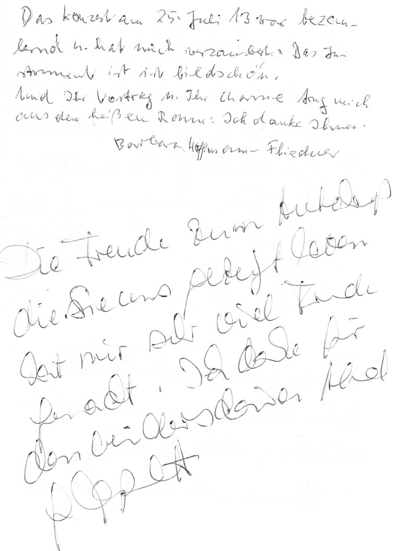 Das Konzert am 25. Juli 13 war bezau-
bernd u. hat mich verzaubert. Das In-
strument ist bildschön.
Und Ihr Vortrag u. Ihr Charme trug mich
aus dem heißen Raum: Ich danke Ihnen.
Barbara Hoffmann-Fliedner
Die Freude zum
die Sie uns gezeigt haben
hat mir sehr viel Freude
gemacht. Ich danke für
den wunderbaren Abend